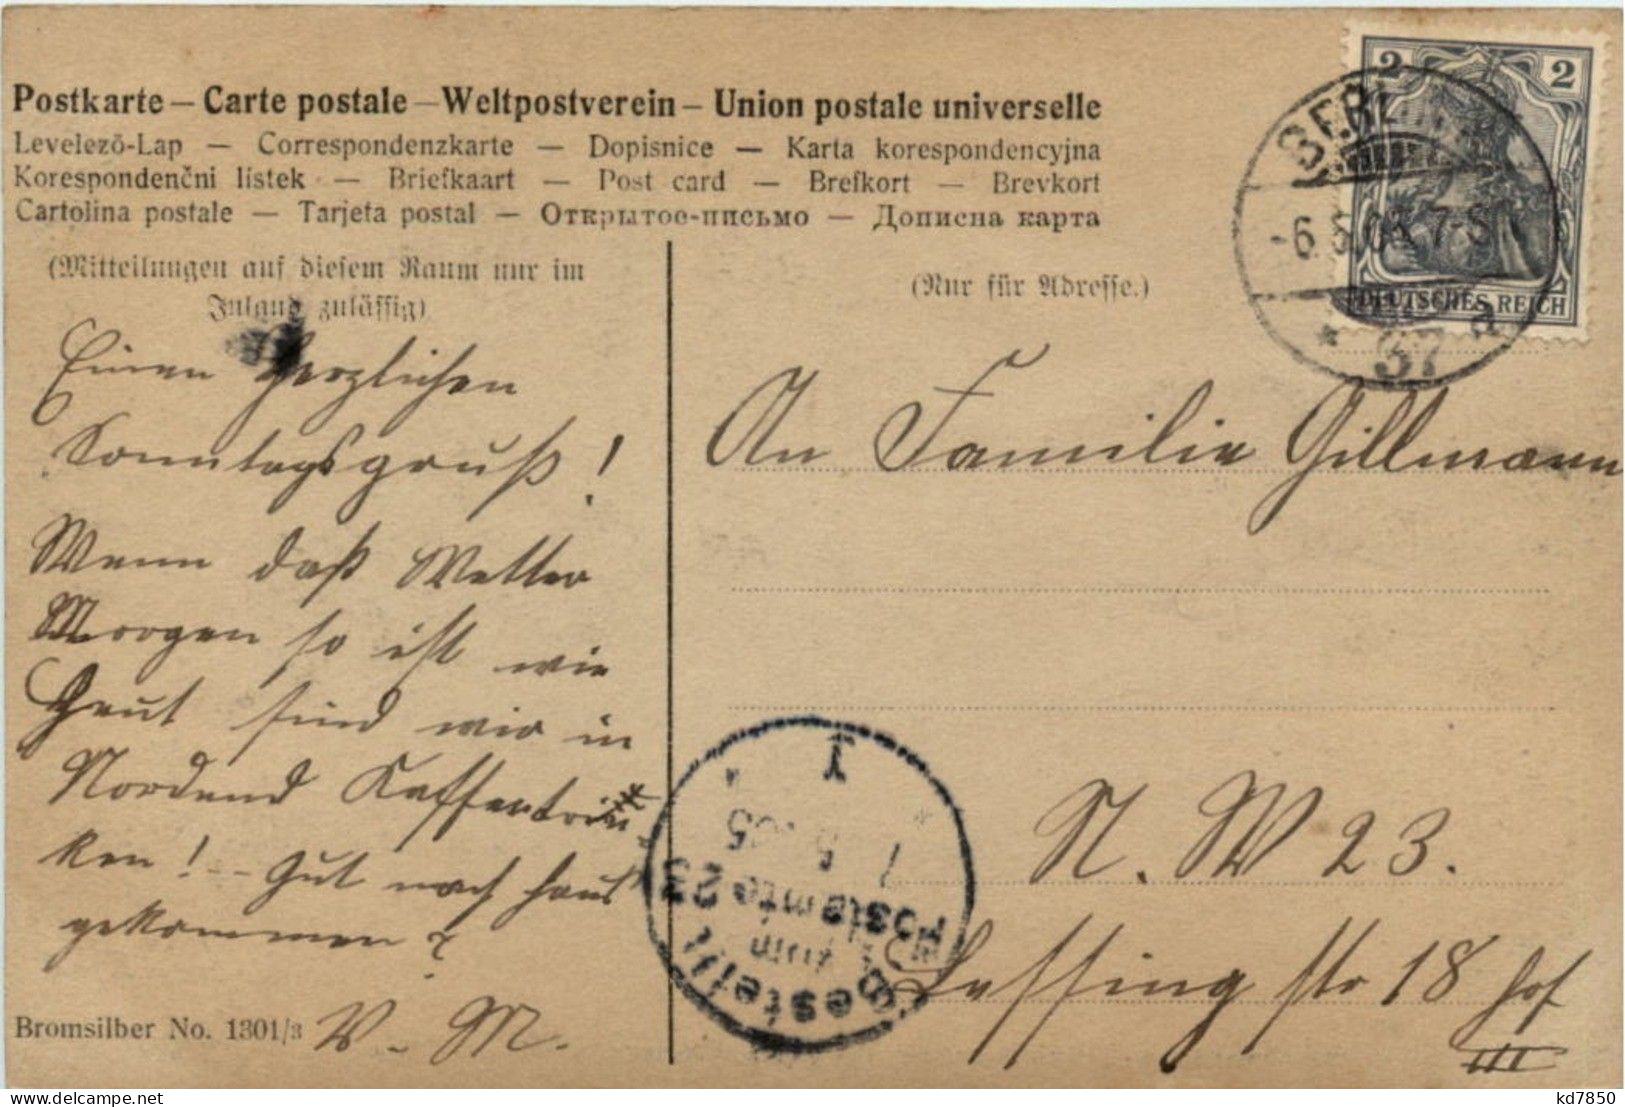 Postkarte – Carte postale – Weltpostverein – Union postale universelle
Levelező-Lap — Correspondenzkarte — Dopisnice — Karta korespondencyjna
Korespondenčni lístek — Briefkaart — Post card — Brefkort — Brevkort
Cartolina postale — Tarjeta postal — Открытое-письмо — Дописна карта
(Mitteilungen auf diesem Raum nur im
Inland zulässig)
(Nur für Adresse.)
2 2
DEUTSCHES REICH
BERLIN
37 a
Einen herzlichen
Sonntagsgruß!
Wenn daß Wetter
Morgen so ist wie
Heut sind wir in
Nordend Kaffeetrin
ken! Gut nach haus
gekommen?
W. M.
An Familie Gillmann
N. W 23.
Lessing str 18 Hof
III
Bestellt
vom
Postamte 23
Bromsilber No. 1301/3
kd7850